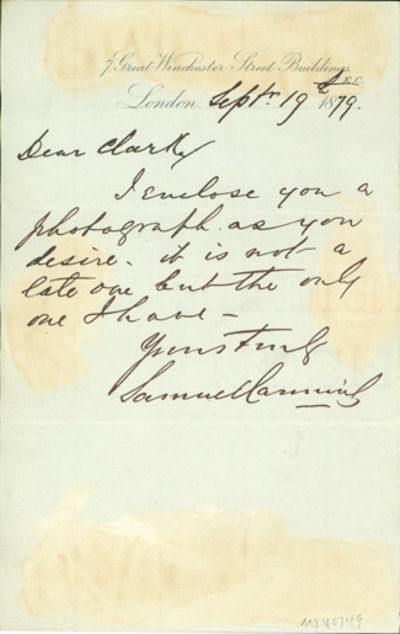 7, Great Winchester Street Buildings,
E.C.
London, Septr 19th 1879.
Dear Clark
I enclose you a
photograph as you
desire - it is not a
late one but the only
one I have -
Yours truly
Samuel Canning